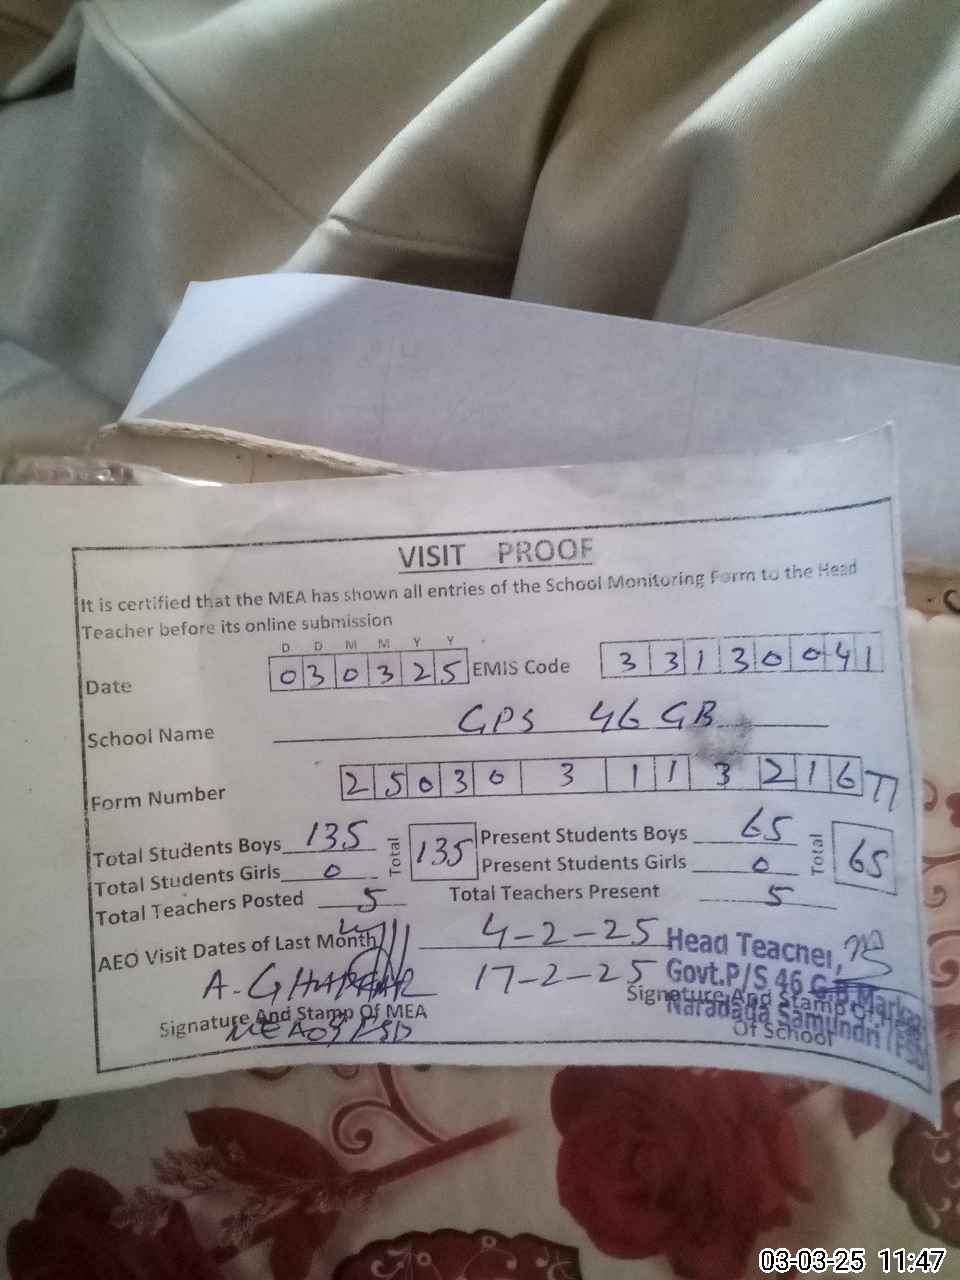 VISIT PROOF
It is certified that the MEA has shown all entries of the School Monitoring Form to the Head
Teacher before its online submission
D D M M Y Y
Date 030325 EMIS Code 33130041
School Name GPS 46 GB
Form Number 25030311321677
Total Students Boys 135 Total 135 Present Students Boys 65 Total 65
Total Students Girls 0 Present Students Girls 0
Total Teachers Posted 5 Total Teachers Present 5
AEO Visit Dates of Last Month 4-2-25 Head Teacher,
A. GHAFFAR 17-2-25 Govt.P/S 46 G.B Markaz
Signature And Stamp Of MEA Signature And Stamp Of
Naradada Samundri
Of School
03-03-25 11:47